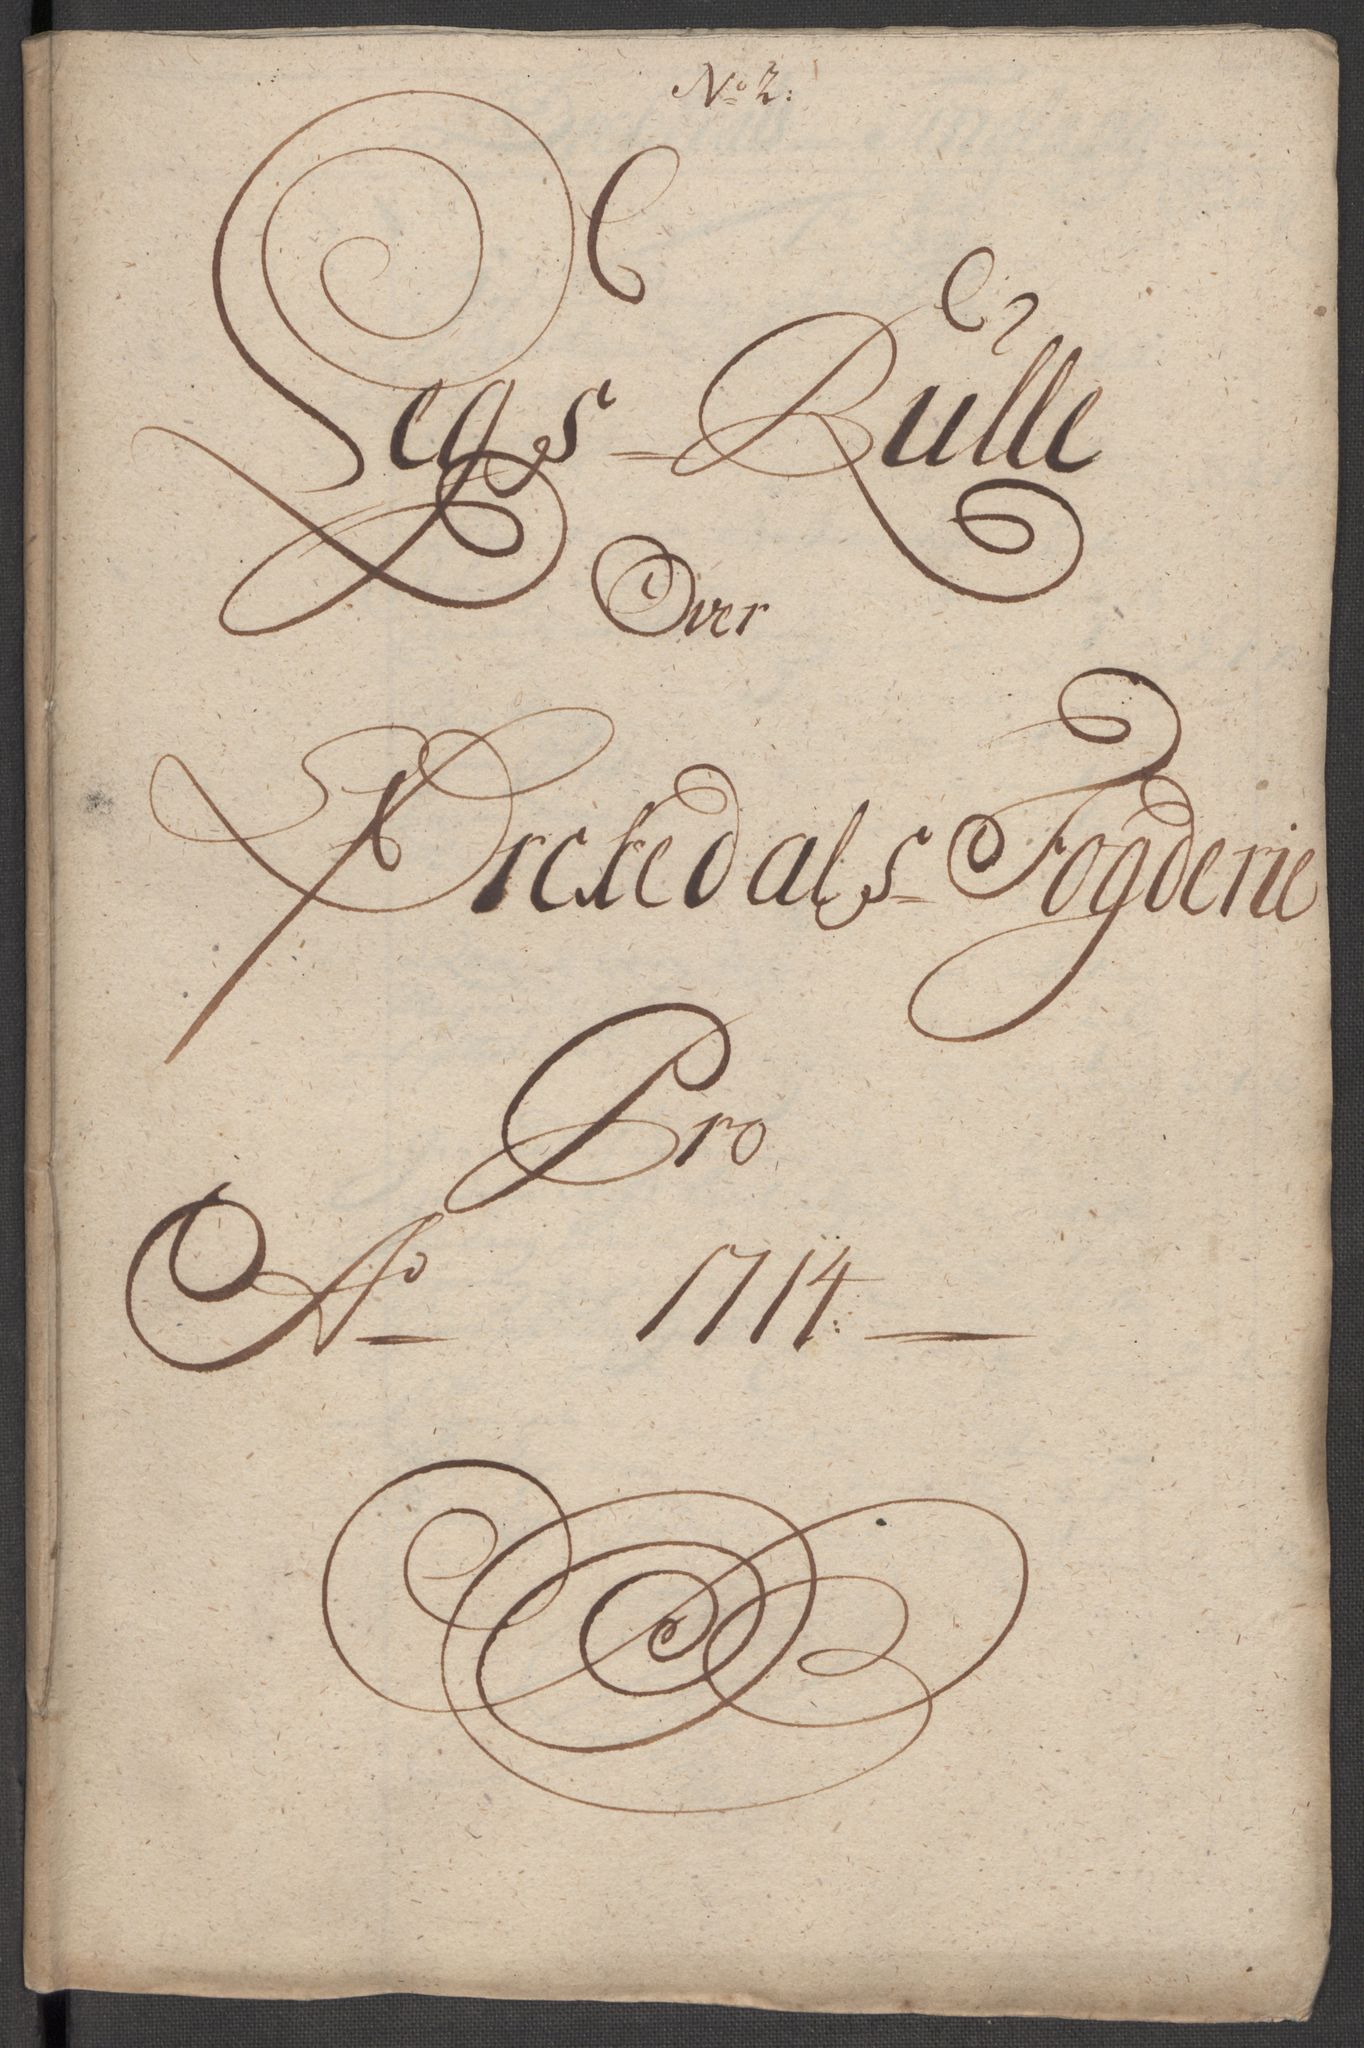 No 2:
Legs-Rulle
Over
Orckedals-Fogderie
Pro
Ao 1714: